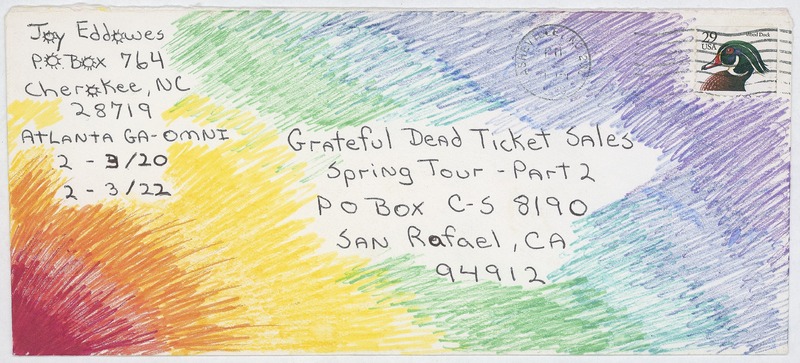 Joy Eddowes
PO Box 764
Cherokee, NC
28719
ATLANTA GA-OMNI
2 - 3/20
2 - 3/22
Grateful Dead Ticket Sales
Spring Tour - Part 2
PO Box C-S 8190
San Rafael, CA
94912
29
USA
Wood Duck